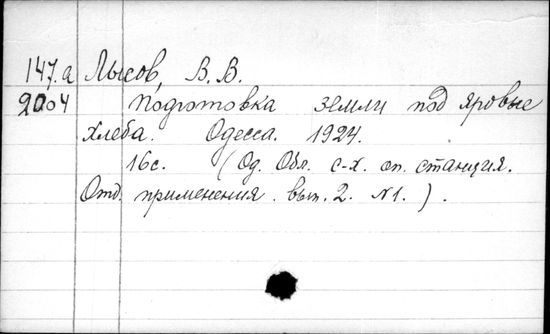 147.а Лысов, В. В.
2004 Подготовка земли под яровые
хлеба. Одесса. 1924.
16с. (Од. Обл. с-х. оп. станция.
Отд. применения. вып. 2. №1.).